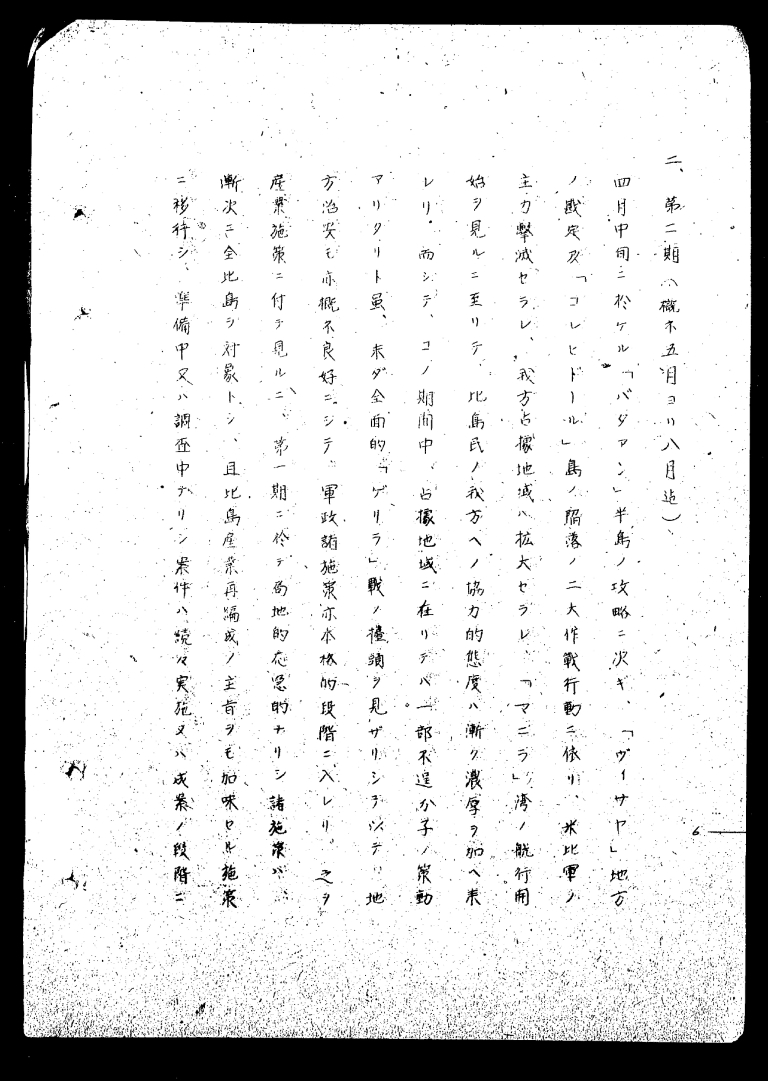 二、第二期(概ネ五月ヨリ八月迄)
四月中旬ニ於ケル「バタアン」半島ノ攻略ニ次ギ、「ヴィサヤ」地方
ノ戡定及「コレヒドール」島ノ陥落ノ二大作戰行動ニ依リ、米比軍ノ
主力擊滅セラレ、我方占據地域ハ拡大セラレ、「マニラ」湾ノ航行開
始ヲ見ルニ至リテ、比島民ノ我方ヘノ協力的態度ハ漸ク濃厚ヲ加ヘ来
レリ。而シテ、コノ期間中、占據地域ニ在リテハ一部不逞分子ノ策動
アリタリト虽、未ダ全面的「ゲリラ」戰ノ擡頭ヲ見ザリシヲ以テ、地
方治安モ亦概ネ良好ニシテ、軍政諸施策亦本格的段階ニ入レリ。之ヲ
産業施策ニ付テ見ルニ、第一期ニ於テ局地的応急的ナリシ諸施策ハ、
漸次ニ全比島ヲ対象トシ、且比島産業再編成ノ主旨ヲモ加味セル施策
ニ移行シ、準備中又ハ調査中ナリシ案件ハ続々実施又ハ成案ノ段階ニ
6